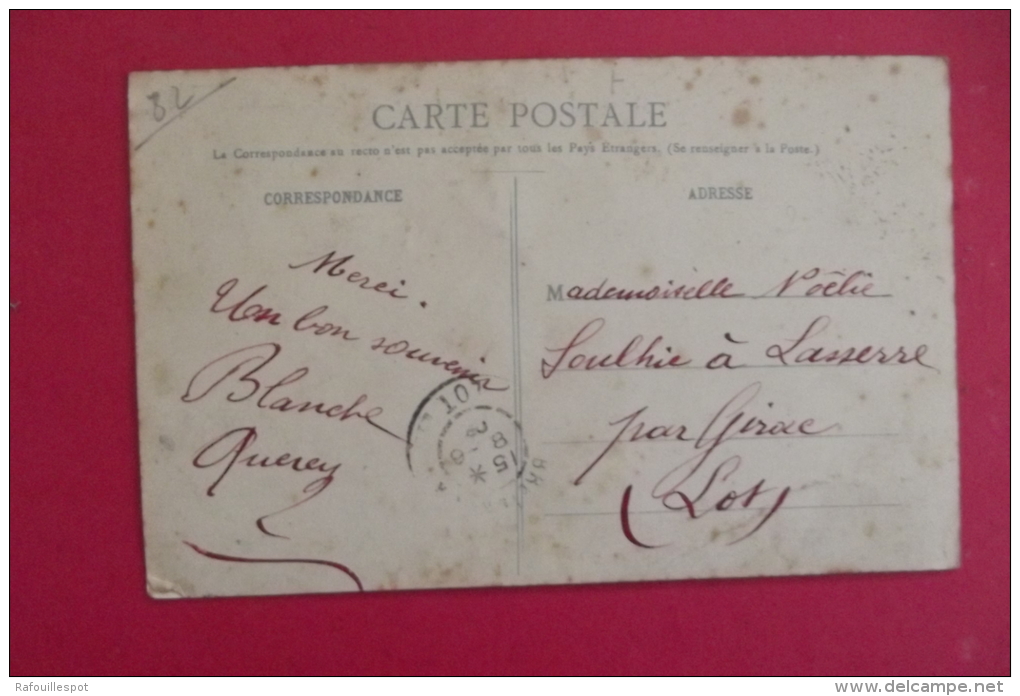 82
CARTE POSTALE
La Correspondance au recto n'est pas acceptée par tous les Pays Etrangers. (Se renseigner à la Poste.)
CORRESPONDANCE
Merci.
Un bon souvenir
Blanche
Quercy
ADRESSE
Mademoiselle Noëlie
Soulhié à Lasserre
par Girac
(Lot)
LOT
Rafouillespot
www.delcampe.net